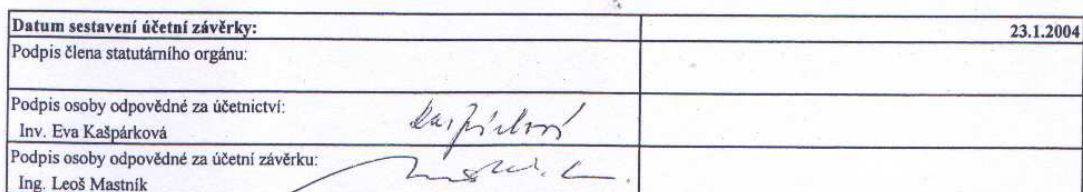 Datum sestavení účetní závěrky: 23.1.2004
Podpis člena statutárního orgánu:
Podpis osoby odpovědné za účetnictví:
Inv. Eva Kašpárková
Kašpárková
Podpis osoby odpovědné za účetní závěrku:
Ing. Leoš Mastník